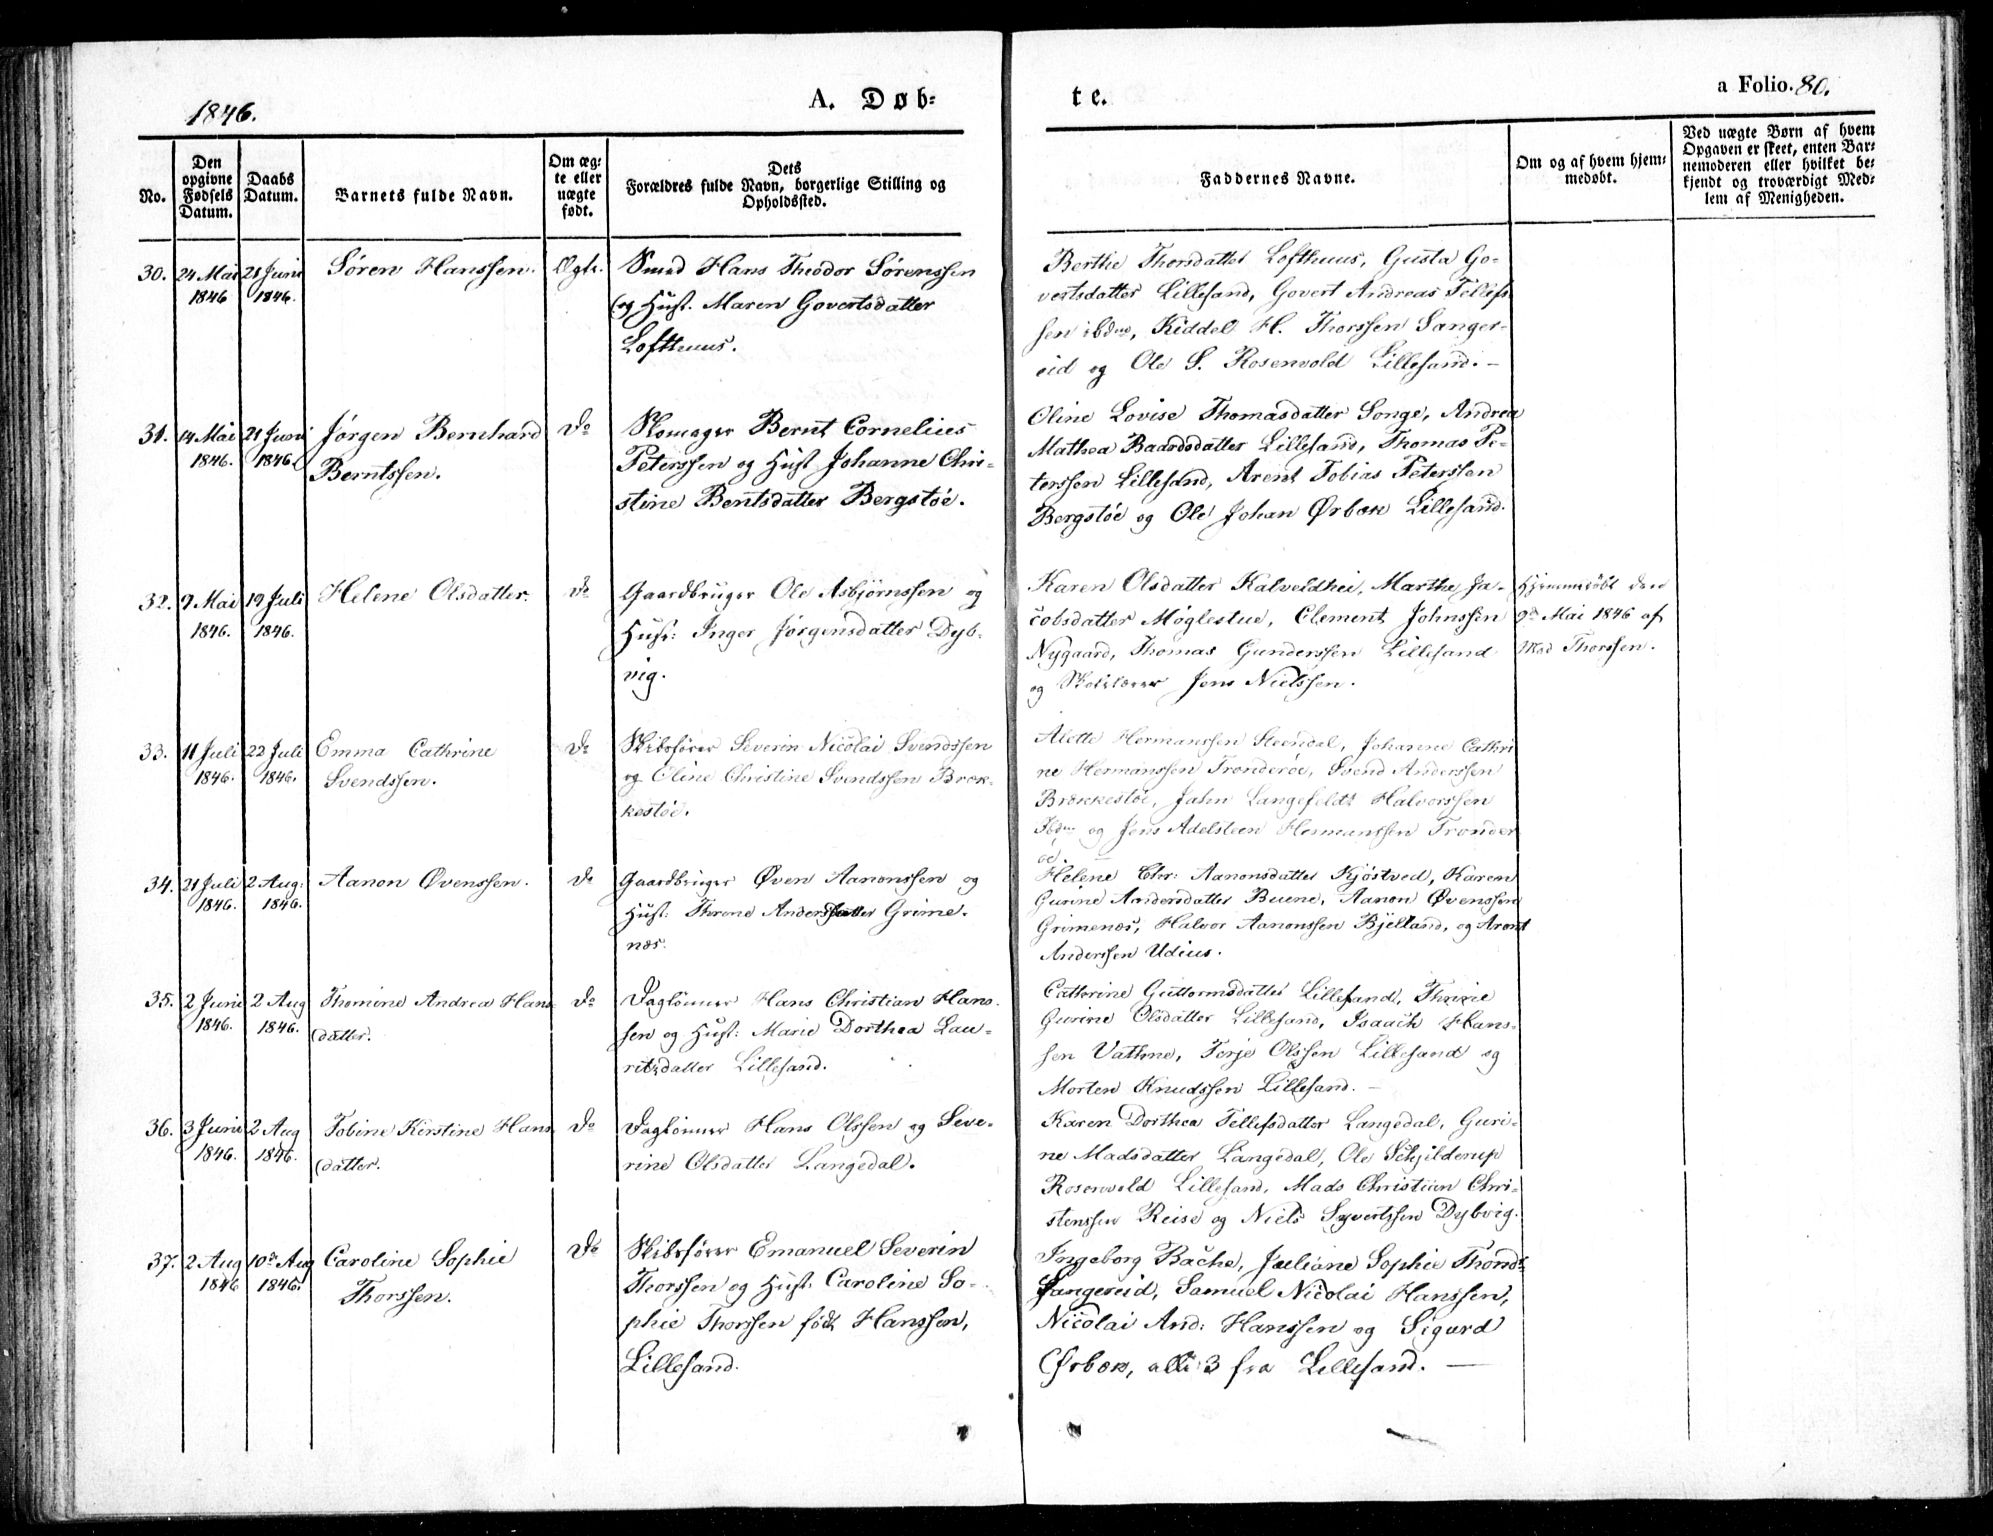 1846.
A. Døb=
te.
a Folio. 80.
No.
Den opgivne Fødsels Datum.
Daabs Datum.
Barnets fulde Navn.
Om æg=
te eller
uægte
født.
Dets
Forældres fulde Navn, borgerlige Stilling og
Opholdssted.
Faddernes Navne.
Om og af hvem hjem=
medøbt.
Ved uægte Børn af hvem
Opgaven er skeet, enten Bar=
nemoderen eller hvilket be=
kjendt og troværdigt Med=
lem af Menigheden.
30. 24 Mai 1846 21 Juni 1846. Søren Hanssen. Ægte.
Smed Hans Theodor Sørenssen
og Hust. Maren Govertsdatter
Lofthuus.
Berthe Thorsdatter Lofthuus, Gusta Go-
vertsdatter Lillesand, Govert Andreas Tellefs
sen ibdm, Kiddel H. Thorssen Sanger-
eid og Ole S. Rosenvold Lillesand. -
31. 14 Mai 1846. 21 Juni 1846. Jørgen Bernhard
Berntssen. Do
Skomager Bernt Cornelius
Peterssen og Hust Johanne Chri-
stine Bentsdatter Bergstøe.
Oline Lovise Thomasdatter Songe, Andrea
Mathea Baardsdatter Lillesand, Thomas Pe-
terssen Lillesand, Arent Tobias Peterssen
Bergstøe og Ole Johan Ørbæk Lillesand.
32. 9 Mai 1846. 19 Juli 1846. Helene Olsdatter. Do
Gaardbruger Ole Asbjørnssen og
Hust: Inger Jørgensdatter Dyb-
vig.
Karen Olsdatter Kalveldhei, Marthe Ja-
cobsdatter Møglestue, Clement Johnssen
Nygaard, Thomas Gunderssen Lillesand
og Skolelærer Jens Nielssen.
Hjemmedøbt den
9de Mai 1846 af
Mad Thorssen.
33. 11 Juli 1846. 22 Juli 1846. Emma Cathrine
Svendssen. Do
Skibsfører Severin Nicolai Svendssen
og Oline Christine Svendssen Bræk-
kestøe.
Alette Hermanssen Steendal, Johanne Cathri
ne Hermanssen Trønderøe, Svend Anderssen
Brækkestøe, Jahn Langefeldt Halvorssen
Ibdm og Jens Adelsteen Hermanssen Trønder
øe.
34. 21 Juli 1846. 2 Aug: 1846. Aanon Øvenssen. Do
Gaardbruger Øven Aanonssen og
Hust: Throne Andersdatter Grime-
næs.
Helene Chr: Aanonsdatter Kjøstved, Karen
Gurine Andersdatter Buene, Aanon Øvenssen
Grimenæs, Halvor Aanonssen Bjelland, og Arent
Anderssen Udius.
35. 2 Juni 1846. 2 Aug 1846. Thomine Andrea Hans
datter. Do
Daglønner Hans Christian Hans-
sen og Hust: Marie Dorthea Lau-
ritzdatter Lillesand.
Cathrine Guttormsdatter Lillesand,
Gurine Olsdatter Lillesand, Isaach Hans-
sen Vathne, Terje Olssen Lillesand og
Morten Knudssen Lillesand. -
36. 3 Juni 1846. 2 Aug 1846. Tobine Kirstine Hans
datter. Do
Daglønner Hans Olssen og Seve-
rine Olsdatter Langedal.
Karen Dorthea Tellefsdatter Langedal, Guri-
ne Madsdatter Langedal, Ole Schjilderup
Rosenvold Lillesand, Mads Christian Chri-
stenssen Reise og Niels Syvertssen Dybvig.
37. 2 Aug 1846 10de Aug 1846. Caroline Sophie
Thorssen. Do
Skibsfører Emanuel Severin
Thorssen og Hust: Caroline So-
phie Thorssen født Hanssen,
Lillesand.
Ingeborg Bache, Juliane Sophie Thonds
Sangereid, Samuel Nicolai Hanssen,
Nicolai And: Hanssen og Sigurd
Ørbæk, alle 3 fra Lillesand. -